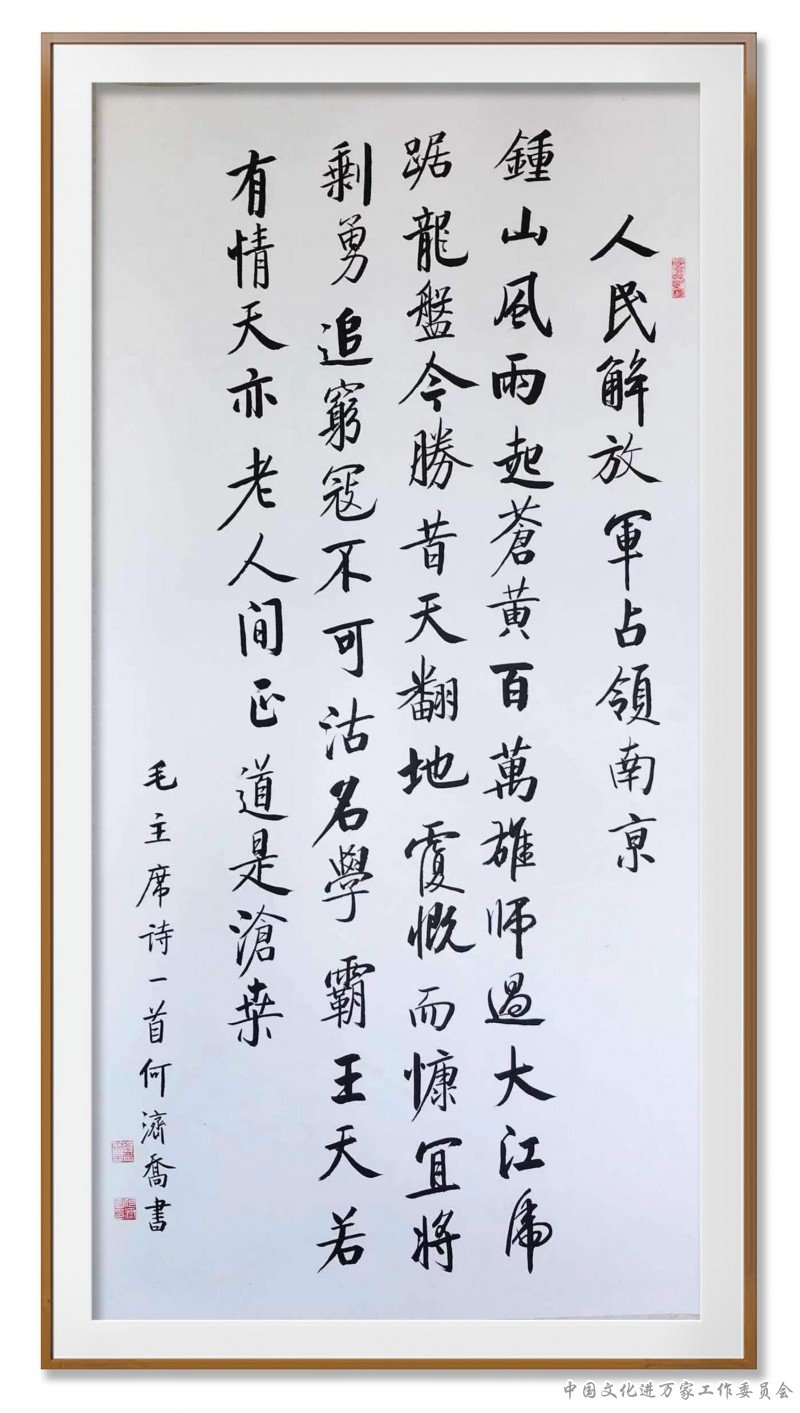 人民解放軍占領南京
鍾山風雨起蒼黃百萬雄师過大江虎
踞龍盤今勝昔天翻地覆慨而慷宜将
剩勇追窮寇不可沽名學霸王天若
有情天亦老人间正道是滄桑
毛主席诗一首何濟喬書
中国文化进万家工作委员会